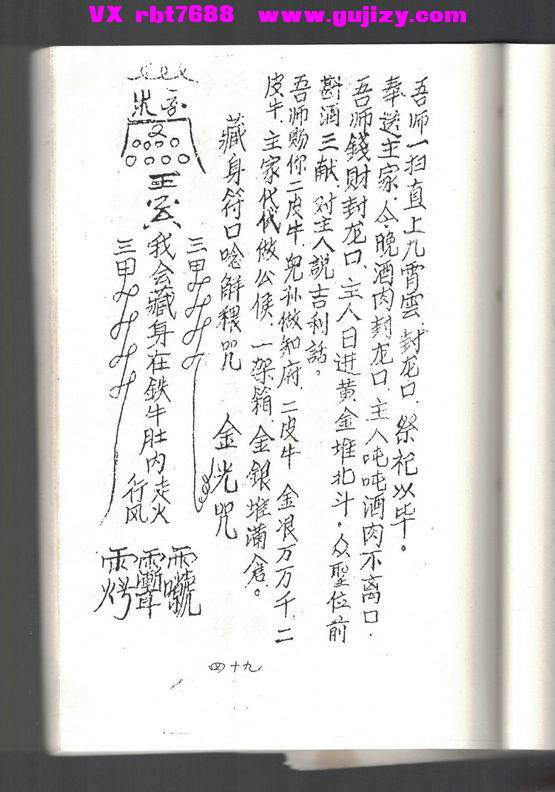 VX rbt7688 www.gujizy.com
吾师一扫直上九霄雲.封龙口.祭祀以毕。
奉送主家.今晚酒肉封龙口.主人吨吨酒肉不离口.
吾师錢财封龙口.主人日进黄金堆北斗.众聖位前
斟酒三献.对主人説吉利話。
吾师赐你二皮牛.兒孙做知府.二皮牛 金艰万万千.二
皮牛.主家代代做公侯.一架箱.金銀堆滿倉。
藏身符口唸解穢咒 金光咒
三甲
我会藏身在鉄牛肚内走火
行风
三甲
四十九